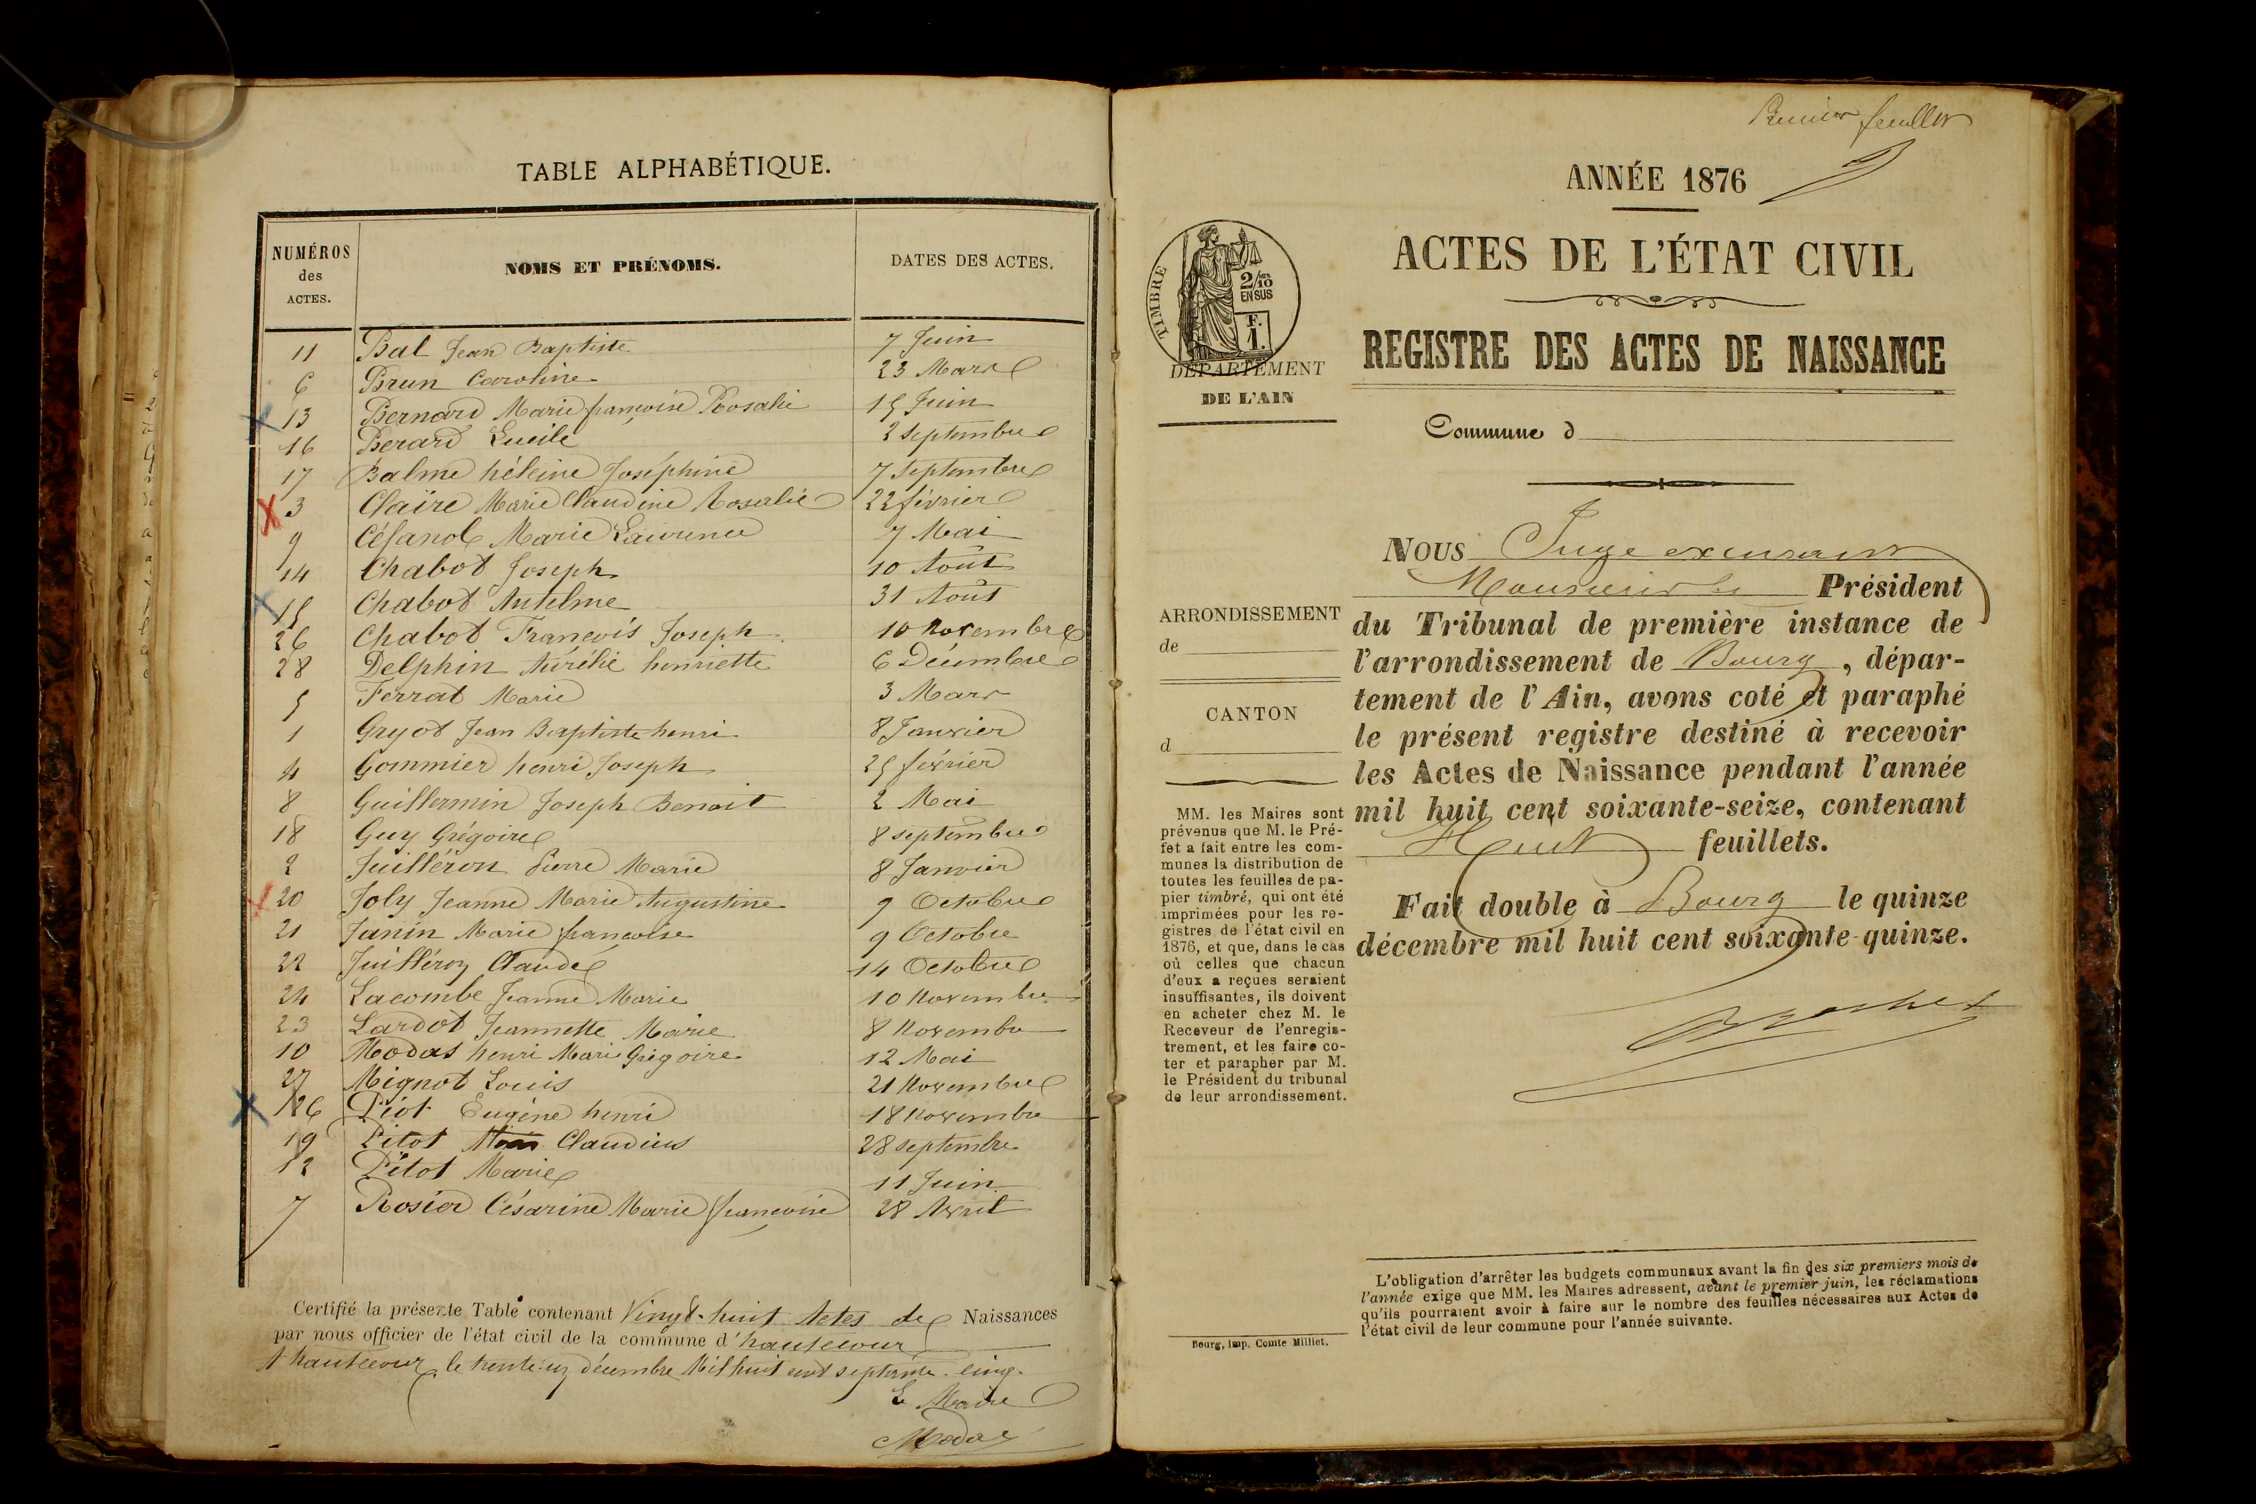 TABLE ALPHABÉTIQUE.
NUMÉROS des ACTES. NOMS ET PRÉNOMS. DATES DES ACTES.
11 Bal Jean Baptiste 7 Juin
6 Brun Caroline 23 Mars
13 Bernard Marie françoise Rosalie 15 Juin
16 Berard Lucile 2 septembre
17 Balme héleine Joséphine 7 septembre
3 Claire Marie Claudine Rosalie 22 février
9 Marie Laurence 7 Mai
14 Chabot Joseph 10 Août
15 Chabot Antelme 31 Août
26 Chabot François Joseph 10 Novembre
28 Delphin Aurélie henriette 6 Décembre
5 Ferrat Marie 3 Mars
1 Gryot Jean Baptiste henri 8 Janvier
4 Gommier henri Joseph 25 février
8 Guillermin Joseph Benoit 2 Mai
18 Guy Grégoire 8 septembre
2 Juilléron Pierre Marie 8 Janvier
20 Joly Jeanne Marie Augustine 9 Octobre
21 Junin Marie françoise 9 Octobre
22 Juilléron Claude 14 Octobre
24 Lacombe Jeanne Marie 10 Novembre
23 Lardot Jeannette Marie 8 Novembre
10 Modas henri Marie Grégoire 12 Mai
27 Mignot Louis 21 Novembre
26 Piot Eugène henri 18 Novembre
19 Pitot Claudius 28 septembre
12 Pitot Marie 11 Juin
7 Rosier Césarine Marie françoise 28 Avril
Certifié la présente Table contenant Vingt-huit Actes de Naissances
par nous officier de l'état civil de la commune d'hautecour
A hautecour le trente-un décembre Mil huit cent septante-cinq.
Le Maire
Modas
Premier feuillet
ANNÉE 1876
ACTES DE L'ÉTAT CIVIL
REGISTRE DES ACTES DE NAISSANCE
TIMBRE
2/10 EN SUS
F. 1.
DÉPARTEMENT
DE L'AIN
Commune d
NOUS Juge exerçant
Monsieur le Président
du Tribunal de première instance de
l'arrondissement de Bourg, dépar-
tement de l'Ain, avons coté et paraphé
le présent registre destiné à recevoir
les Actes de Naissance pendant l'année
mil huit cent soixante-seize, contenant
Huit feuillets.
Fait double à Bourg le quinze
décembre mil huit cent soixante-quinze.
ARRONDISSEMENT
de
CANTON
d
MM. les Maires sont
prévenus que M. le Pré-
fet a fait entre les com-
munes la distribution de
toutes les feuilles de pa-
pier timbré, qui ont été
imprimées pour les re-
gistres de l'état civil en
1876, et que, dans le cas
où celles que chacun
d'eux a reçues seraient
insuffisantes, ils doivent
en acheter chez M. le
Receveur de l'enregis-
trement, et les faire co-
ter et parapher par M.
le Président du tribunal
de leur arrondissement.
L'obligation d'arrêter les budgets communaux avant la fin des six premiers mois de
l'année exige que MM. les Maires adressent, avant le premier juin, les réclamations
qu'ils pourraient avoir à faire sur le nombre des feuilles nécessaires aux Actes de
l'état civil de leur commune pour l'année suivante.
Bourg, imp. Comte Milliet.